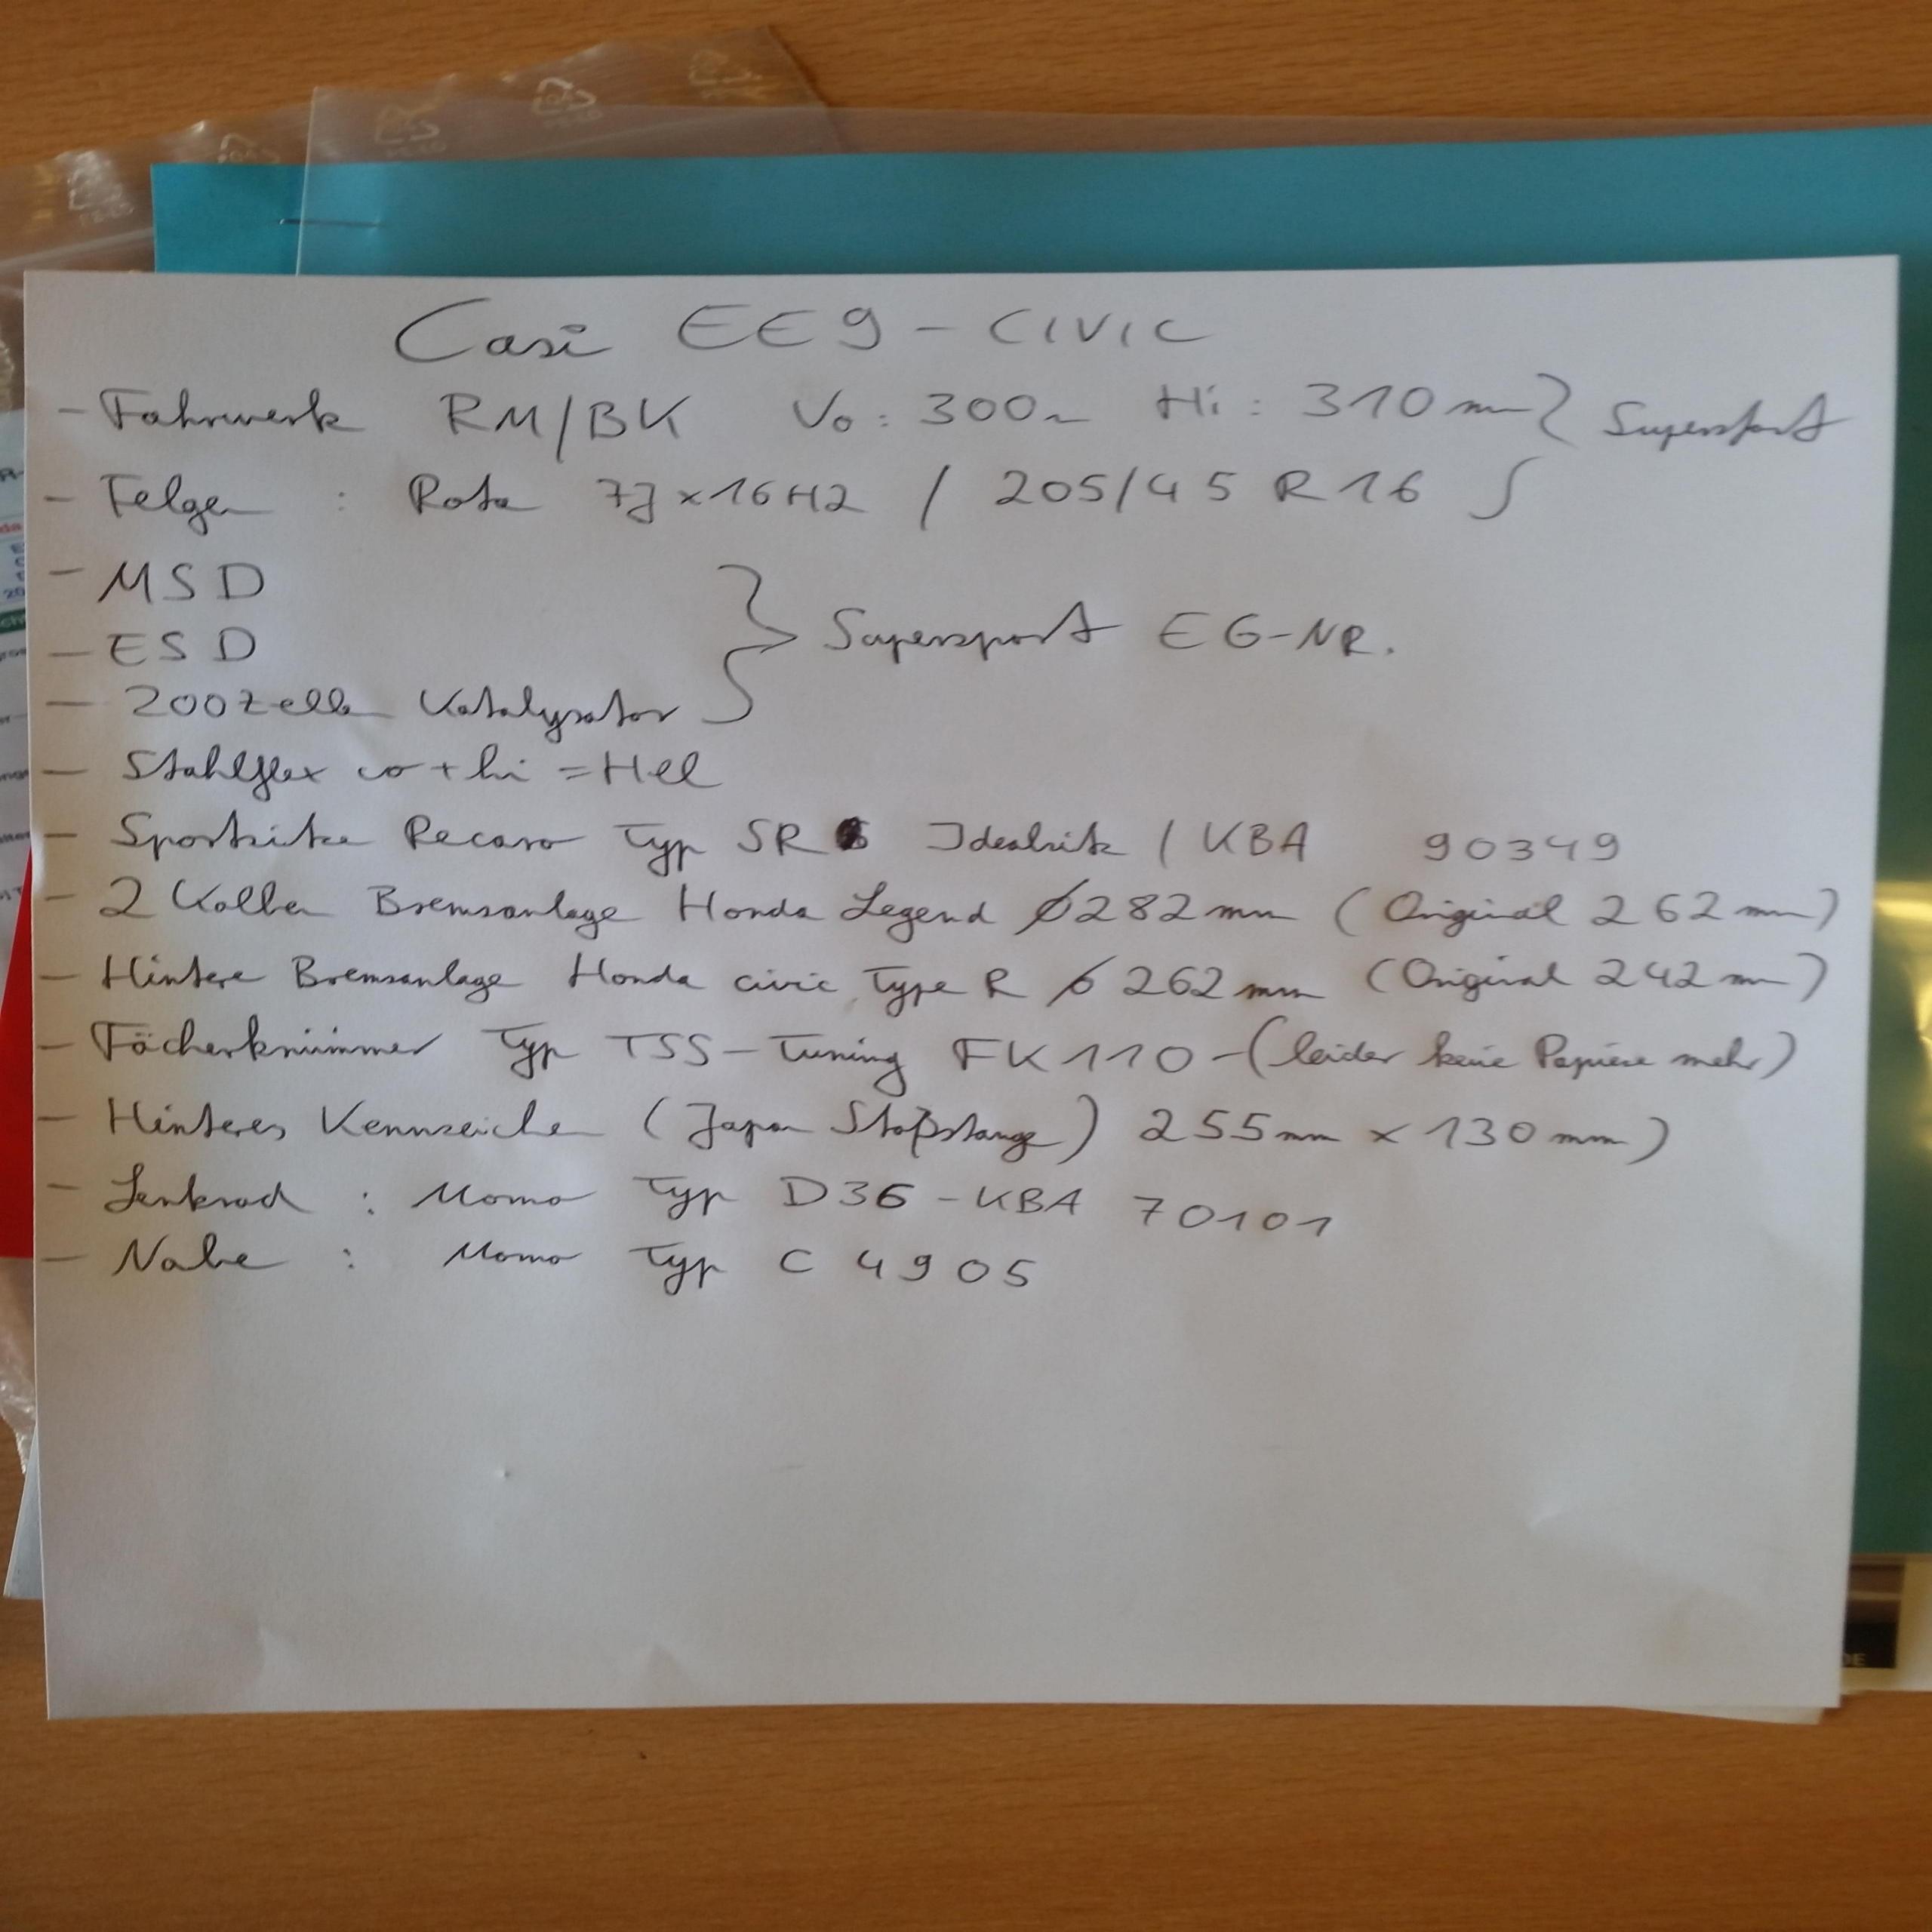 Casi EE9 - CIVIC
- Fahrwerk RM/BK Vo: 300m Hi: 310mm } Supersport
- Felgen : Rota 7Jx16H2 / 205/45 R16
- MSD
- ESD } Supersport EG-NR.
- 200zellen Katalysator
- Stahlflex vo + hi = Hel
- Sportsitze Recaro Typ SR Idealsitz / KBA 90349
- 2 Kolben Bremsanlage Honda Legend Ø282mm (Original 262mm)
- Hintere Bremsanlage Honda civic Type R Ø 262mm (Original 242mm)
- Fächerkrümmer Typ TSS-Tuning FK110 - (leider keine Papiere mehr)
- Hinteres Kennzeichen (Japan Stoßstange) 255mm x 130mm)
- Lenkrad : Momo Typ D36 - KBA 70101
- Nabe : Momo Typ C 4905